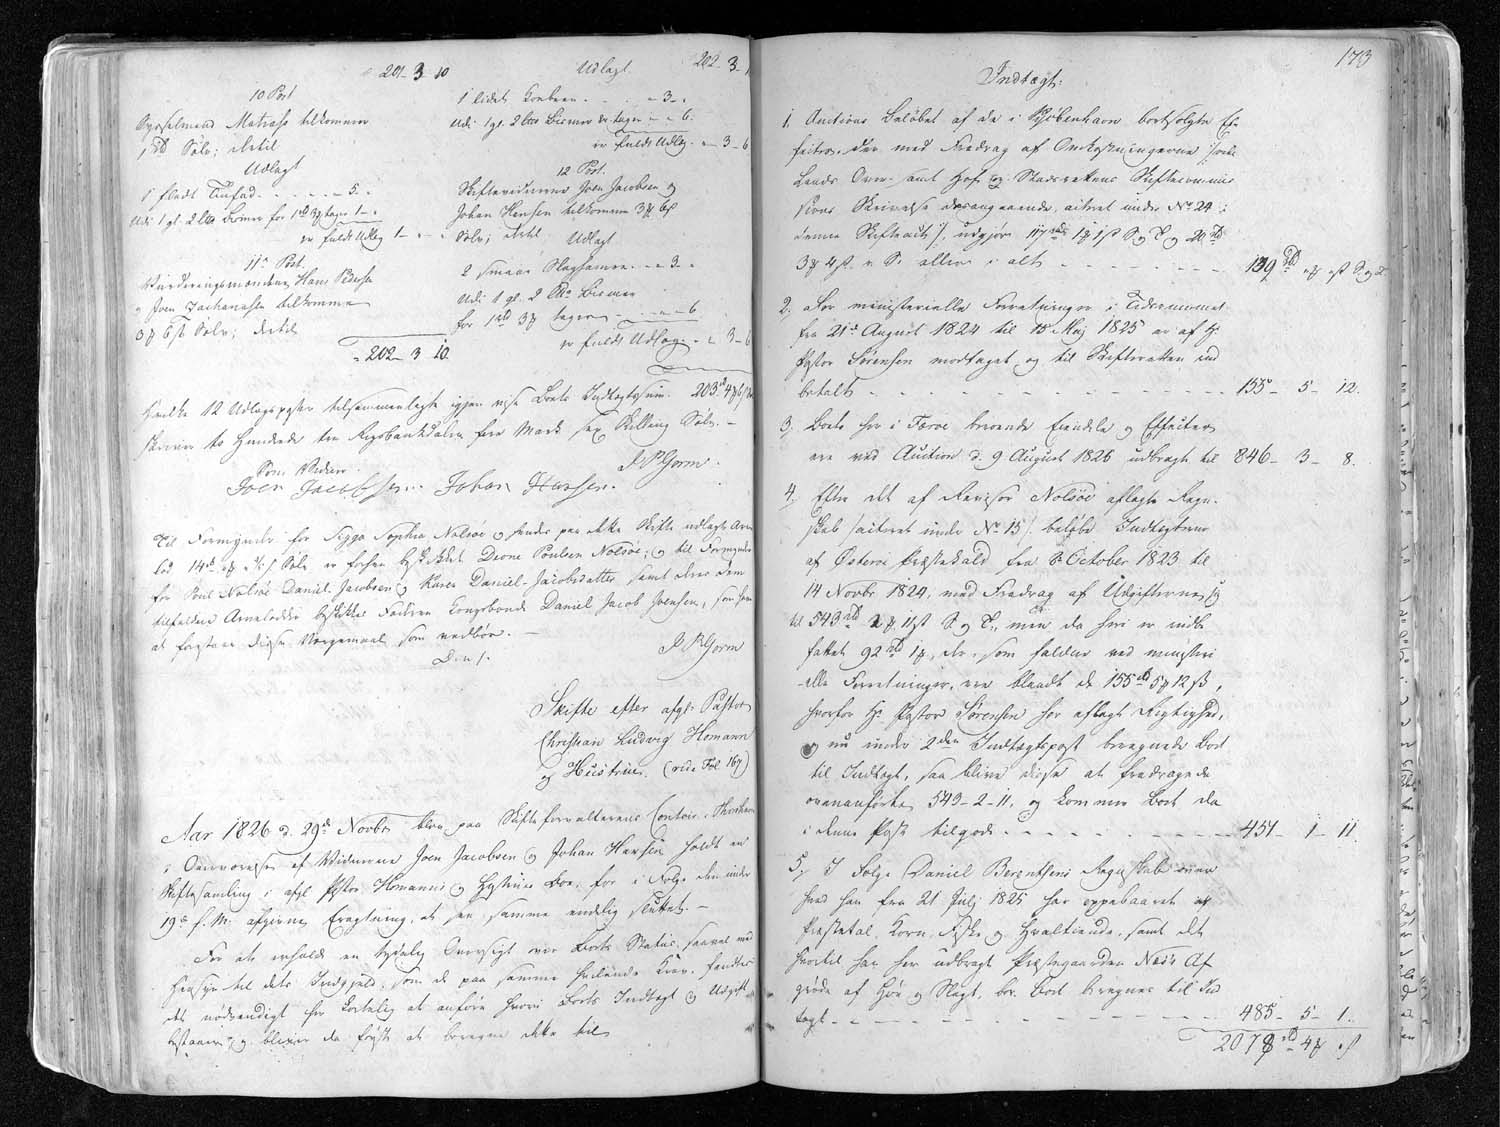 201 - 3 - 10
10 Post
Sysselmand Matras tilkommer
1 rbd Sølv; dertil
Udlagt
1 fladt Tinfad - - - - 5 -
Udi 1 gl. 2 Bismer for 1 rbd 3 # tages 1 - -
er fuldt Udlæg 1 - -
11te Post.
Vurderingsmændene Hans Pedersen
og Joen Zachariasen tilkommer
3 # 6 s Sølv; dertil
202 - 3 - 10
Udlagt 202 - 3 - 1
1 lidet - - - - 3 -
Udi 1 gl. 2 Bismer tages - - 6.
er fuldt Udlæg - 3 - 6
12 Post.
Skiftevidnerne Joen Jacobsen og
Johan Hansen tilkomme 3 # 6 s
Sølv; dertil Udlagt
2 smaae - - 3 -
Udi 1 gl. 2 Bismer
for 1 rbd 3 # tages - - - 6
er fuldt Udlæg - - 3 - 6
Hvilke 12 Udlagsposter tilsammenlagte igjen vise Boets Indtægtssum 203 rbd 4 # 6 s
skriver to Hundrede tre Rigsbankdaler fire Mark sex Skilling Sølv. -
Som Vidner
Joen Jacobsen. Johan Hansen.
Til Formynder for Sigga Sophia Nolsøe og hendes paa dette Skifte udlagte Arve
lod 14 rbd Sølv er forhen beskikket Poulsen Nolsøe; og til Formynder
for Poul Nolsøe Daniel Jacobsen og Karen Daniel-Jacobsdatter samt deres dem
tilfaldne Arvelodder beskikkes Faderen Kongsbonde Daniel Jacob Joensen, som har
at forestaae disse Værgemaal som vedbør. -
Skifte efter afgl. Pastor
Christian Ludvig Homann
og Hustrue. (vide Fol 167)
Aar 1826 d. 29de Novbr blev paa Skifteforvalterens Contoir i Thorshavn
i Overværelse af Vidnerne Joen Jacobsen og Johan Hansen holdt en
Skiftesamling i afgl. Pastor Homanns og Hustrues Boe, for i Følge den under
19de f. M. afgivne Eragtning, at see samme endelig sluttet. -
For at erholde en tydelig Oversigt over Boets Status, saavel med
Hensyn til dets Indgjeld, som de paa samme hvilende Krav, fandtes
det nødvendigt her kortelig at anføre hvori Boets Indtægt og Udgift
bestaaer, og bliver da først at beregne dette til
173
Indtægt:
1, Auctions Beløbet af de i Kjøbenhavn bortsolgte Ef-
fecter, der med Fradrag af Omkostningerne
Lands Over- samt Hof- og Stadsrettens Skiftecommis
sions Skrivelse desangaaende, acteret under No 24 i
denne Skifteact/, udgjør 117 rbd 1 # 1 s S. og T. og 20 rbd
3 # 4 s r. S. eller i alt - - - - - - 139 rbd # s S. og T.
2, For ministerielle Forretninger i Tidsrummet
fra 21de August 1824 til 15 Maj 1825 er af Hr.
Pastor Sørensen modtaget og til Skifteretten ind
betalt - - - - - - 155 - 5 - 12.
3, Boets her i Færøe beroende Eiendele og Effecter
ere ved Auction d. 9 August 1826 udbragt til 846 - 3 - 8.
4, Efter det af Revisor Nolsøe aflagte Regn-
skab /acteret under No 15/ beløbe Indtægterne
af Østerøe Præstekald fra 8 October 1823 til
14 Novbr 1824, med Fradrag af Udgifterne, sig
til 543 rbd 2 # 11 s S. og T., men da heri er indbe
fattet 92 rbd 1 #, der, som faldne ved ministeri
elle Forretninger, ere blandt de 155 rbd 5 # 12 s,
hvorfor Hr. Pastor Sørensen har aflagt Rigtighed,
og nu under 2den Indtægtspost beregnede Boet
til Indtægt, saa blive disse at fradrage de
ovenanførte 543 - 2 - 11, og kommer Boet da
i denne Post tilgode - - - - - - 451 - 1 - 11
5, I Følge Daniel Berentsens Regnskab over
hvad han fra 21 Julj 1825 har oppebaaret af
Præstetal, Korn, Fiske og Hvaltiende, samt det
hvortil han har udbragt Præstegaarden Næs's Af
grøde af Høe og Slagt, bør Boet beregnes til Ind
tægt - - - - - - 485 - 5 - 1.
2078 rbd 4 # s